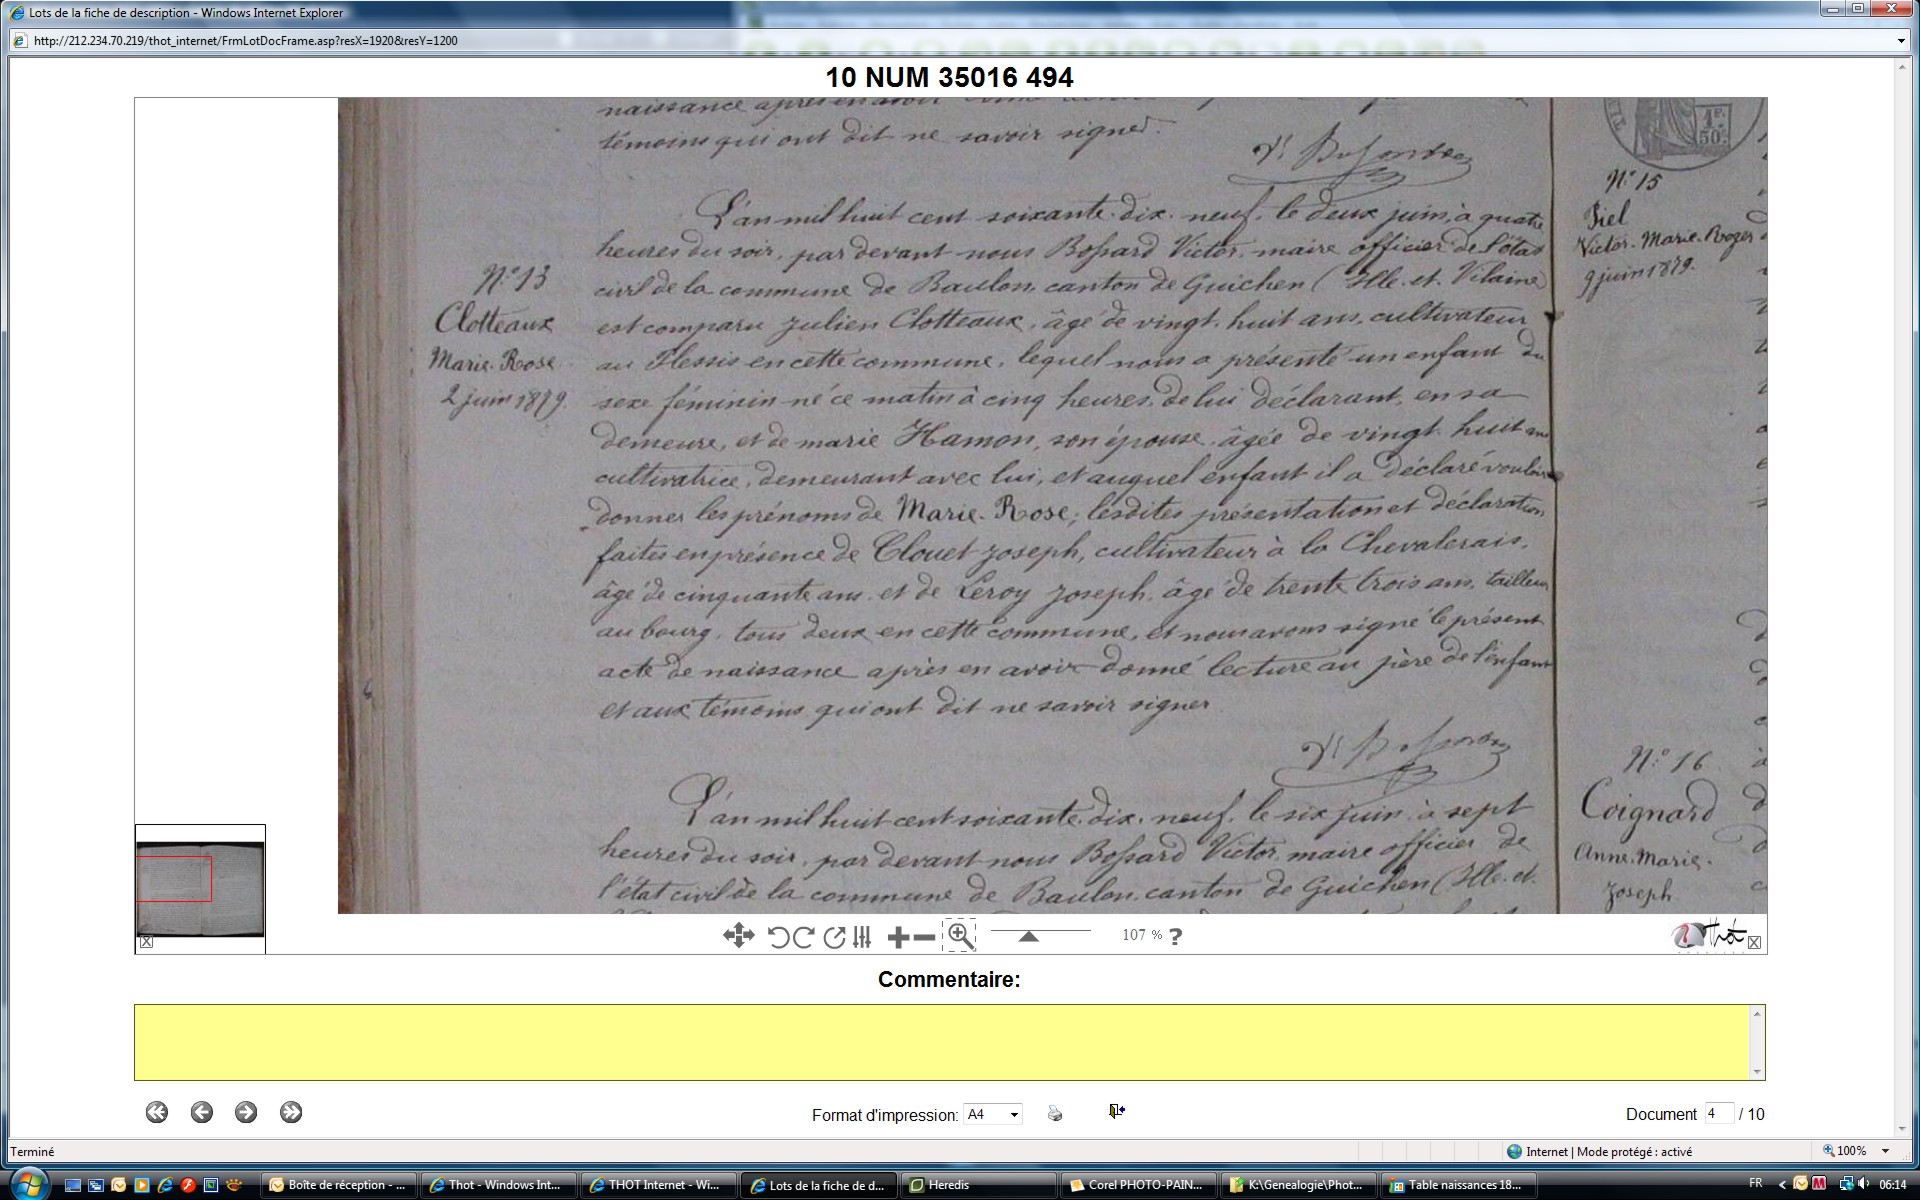 Lots de la fiche de description - Windows Internet Explorer
http://212.234.70.219/thot_internet/FrmLotDocFrame.asp?resX=1920&resY=1200
10 NUM 35016 494
naissance après en avoir
témoins qui ont dit ne savoir signer.
Vr Bossard
N° 13
Clotteaux
Marie-Rose
2 juin 1879
L'an mil huit cent soixante-dix-neuf, le deux juin, à quatre
heures du soir, par devant nous Bossard Victor, maire officier de l'état
civil de la commune de Baulon, canton de Guichen (Ille-et-Vilaine)
est comparu Julien Clotteaux, âgé de vingt-huit ans, cultivateur
au Plessis en cette commune, lequel nous a présenté un enfant du
sexe féminin né ce matin à cinq heures, de lui déclarant, en sa
demeure, et de marie Hamon, son épouse, âgée de vingt-huit ans
cultivatrice, demeurant avec lui, et auquel enfant il a déclaré vouloir
donner les prénoms de Marie-Rose; lesdites présentation et déclaration
faites en présence de Clouet Joseph, cultivateur à la Chevalerais,
âgé de cinquante ans, et de Leroy Joseph, âgé de trente trois ans, tailleur
au bourg, tous deux en cette commune, et nous avons signé le présent
acte de naissance après en avoir donné lecture au père de l'enfant
et aux témoins qui ont dit ne savoir signer
Vr Bossard
L'an mil huit cent soixante-dix-neuf, le six juin, à sept
heures du soir, par devant nous Bossard Victor, maire officier de
l'état civil de la commune de Baulon, canton de Guichen (Ille-et-
1F
50c
N° 15
Piel
Victor-Marie-Roger
9 juin 1879.
N° 16
Coignard
Anne-Marie-
Joseph
107 % ?
Thot
Commentaire:
Format d'impression: A4
Document 4 / 10
Terminé
Internet | Mode protégé : activé
100%
Boîte de réception - ...
Thot - Windows Int...
THOT Internet - Wi...
Lots de la fiche de d...
Heredis
Corel PHOTO-PAIN...
K:\Genealogie\Phot...
Table naissances 18...
FR
06:14